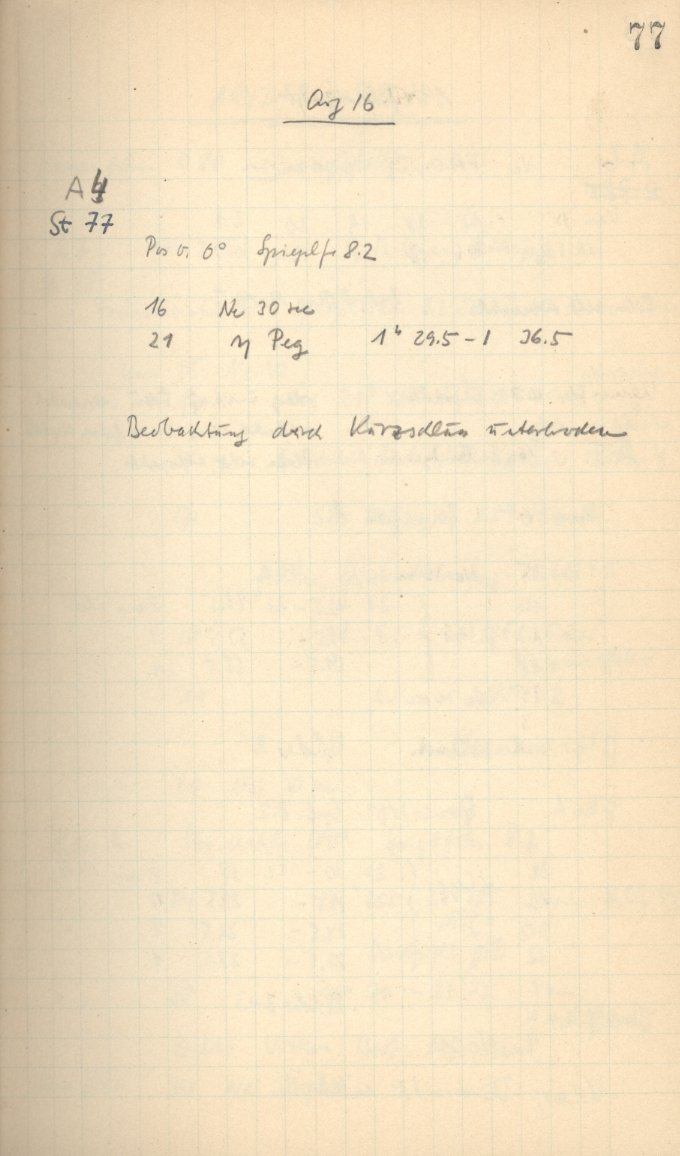 77
Aug 16
A 4
St 77
Pos v. 6° Spiegelfe 8.2
16 Ne 30 sec
21 η Peg 1ʰ 29.5 – 1 36.5
Beobachtung durch Kurzschluss unterbrochen